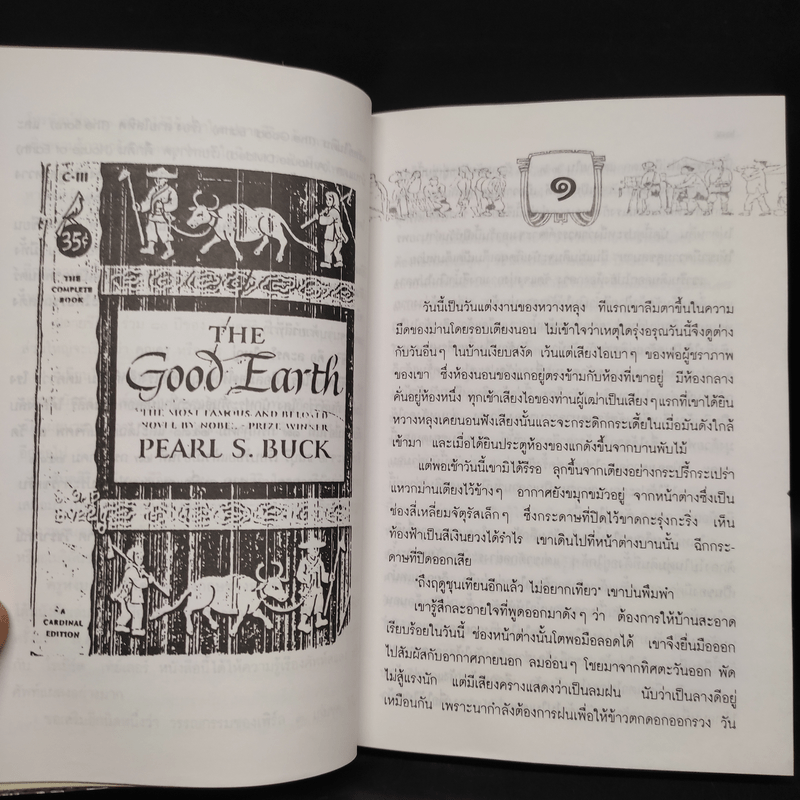 C-III
35¢
THE
COMPLETE
BOOK
THE
Good Earth
"THE MOST FAMOUS AND BELOVED
NOVEL BY NOBEL-PRIZE WINNER
PEARL S. BUCK
A
CARDINAL
EDITION
๑
วันนี้เป็นวันแต่งงานของหวางหลุง ที่แรกเขาลืมตาขึ้นในความ
มืดของม่านโดยรอบเตียงนอน ไม่เข้าใจว่าเหตุใดรุ่งอรุณวันนี้จึงดูต่าง
กับวันอื่นๆ ในบ้านเงียบสงัด เว้นแต่เสียงไอเบาๆ ของพ่อผู้ชราภาพ
ของเขา ซึ่งห้องนอนของแกอยู่ตรงข้ามกับห้องที่เขาอยู่ มีห้องกลาง
คั่นอยู่ห้องหนึ่ง ทุกเช้าเสียงไอของท่านผู้เฒ่าเป็นเสียงๆแรกที่เขาได้ยิน
หวางหลุงเคยนอนฟังเสียงนั้นและจะกระดิกกระเดี้ยในเมื่อมันดังใกล้
เข้ามา และเมื่อได้ยินประตูห้องของแกดังขึ้นจากบานพับไม้
แต่พอเช้าวันนี้เขามิได้รีรอ ลุกขึ้นจากเตียงอย่างกระปรี้กระเปร่า
แหวกม่านเตียงไว้ข้างๆ อากาศยังขมุกขมัวอยู่ จากหน้าต่างซึ่งเป็น
ช่องสี่เหลี่ยมจัตุรัสเล็กๆ ซึ่งกระดาษที่ปิดไว้ขาดกะรุ่งกะริ่ง เห็น
ท้องฟ้าเป็นสีเงินยวงได้รำไร เขาเดินไปที่หน้าต่างบานนั้น ฉีกกระ-
ดาษที่ปิดออกเสีย
"ถึงฤดูชุนเทียนอีกแล้ว ไม่อยากเทียว" เขาบ่นพึมพำ
เขารู้สึกละอายใจที่พูดออกมาดังๆ ว่า ต้องการให้บ้านสะอาด
เรียบร้อยในวันนี้ ช่องหน้าต่างนั้นโตพอมือลอดได้ เขาจึงยื่นมือออก
ไปสัมผัสกับอากาศภายนอก ลมอ่อนๆ โชยมาจากทิศตะวันออก พัด
ไม่สู้แรงนัก แต่มีเสียงครางแสดงว่าเป็นลมฝน นับว่าเป็นลางดีอยู่
เหมือนกัน เพราะนากำลังต้องการฝนเพื่อให้ข้าวตกดอกออกรวง วัน